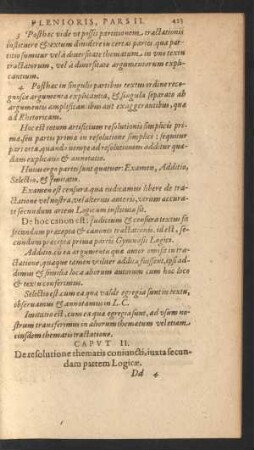 PLENIORIS, PARS II. 425
3 Posthac vide ut possis partitionem, tractationis
instituere & textum dividere in certas partes qua par
titio sumitur vel à diversitate thematum, in uno textu
tractatorum, vel à diversitate argumentorum expli
cantium.
4. Posthac in singulis partibus textus ordine reco-
gnosce argumenta explicantia, & singula separata ab
argumentis amplificantibus aut exaggerantibus, quæ
ad Rhetoricam.
Hoc est totum artificium resolutionis simplicis pri-
ma, seu partis primæ in resolutione simplici; sequitur
pars orta, quando nempe ad resolutionem additur quæ-
dam explicatio & annotatio.
Huius ergo partes sunt quatuor: Examen, Additio,
Selectio, & Imitatio.
Examen est censura qua iudicamus libere de tra-
ctatione vel nostra, vel alterius autoris, utrum accura-
te secundum artem Logicam instituta sit.
De hoc canon est: Iudicium & censura textus sit
secundum præcepta & canones tractationis, id est, se-
cundum præcepta prima partis Gymnasii Logici.
Additio est ea argumenta quæ autor omisit in tra-
ctatione, quæque tamen utiliter addita fuissent, ips ad-
dimus & similia loca aliorum autorum cum hoc loco
& textu conferimus.
Selectio est cum ea quæ valde egregia sunt in textu,
observamus & annotamus in L.C.
Imitatio est, cum ex quia egregia sunt, ad usum no-
strum transferimus in aliorum thematum vel etiam
eiusdem thematis tractatione.
CAPVT II.
De resolutione thematis coniuncti, iuxta secun-
dam partem Logicæ.
Dd 4